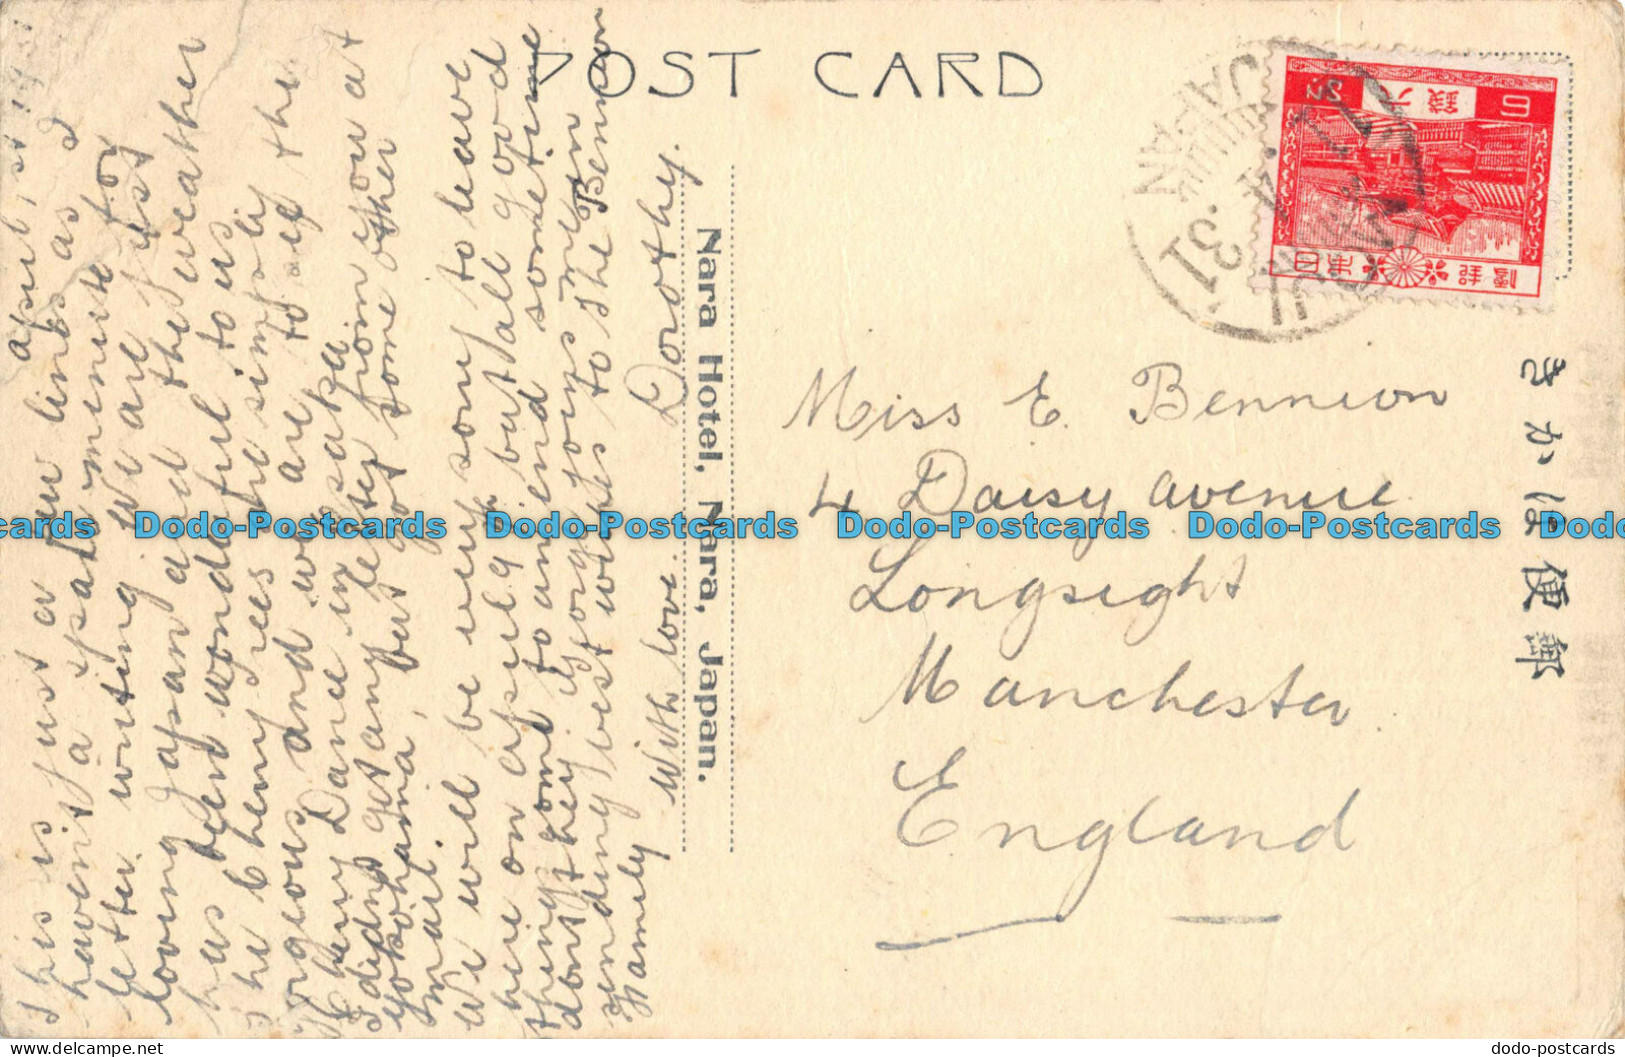 POST CARD
April 1st 1931
This is just a few lines as I
havent a spare minute for
letter writing. We are just
loving Japan and the weather
has been wonderful to us
The Cherry trees are simply
gorgeous and we are to see the
Cherry Dance in Osaka
I didnt get any letter from you at
Yokohama, but got some other
mail.
We will be very sorry to leave
here on April 9th but all good
things come to an end sometime
dont they
sending best wishes to the Bennion
Family
With love
Dorothy.
Nara Hotel, Nara, Japan.
JAPAN
31
六錢
6
SN
日本郵便
Miss E. Bennion
4 Daisy Avenue
Longsight
Manchester
England
きかは便郵
Dodo-Postcards Dodo-Postcards Dodo-Postcards Dodo-Postcards Dodo-Postcards
dodo-postcards.com